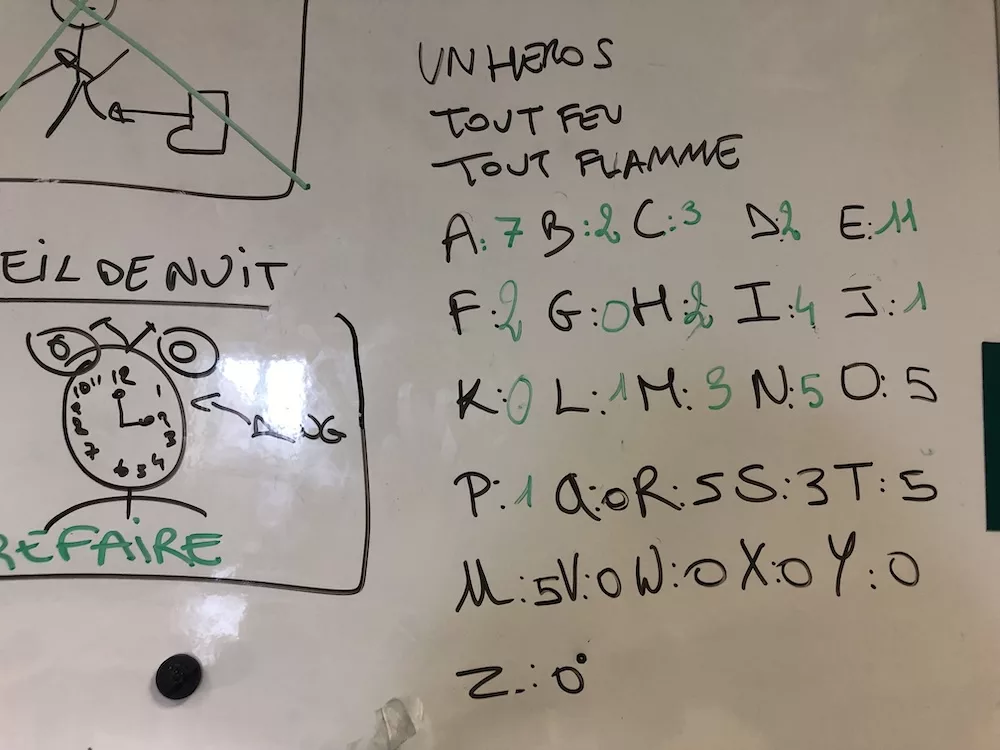 EIL DE NUIT
10 11 12 1
9 9
8 3
7 6 5 4
DING
REFAIRE
UN HEROS
TOUT FEU
TOUT FLAMME
A:7 B:2 C:3 D:2 E:11
F:2 G:0 H:2 I:4 J:1
K:0 L:1 M:3 N:5 O:5
P:1 Q:0 R:5 S:3 T:5
U:5 V:0 W:0 X:0 Y:0
Z.:0°